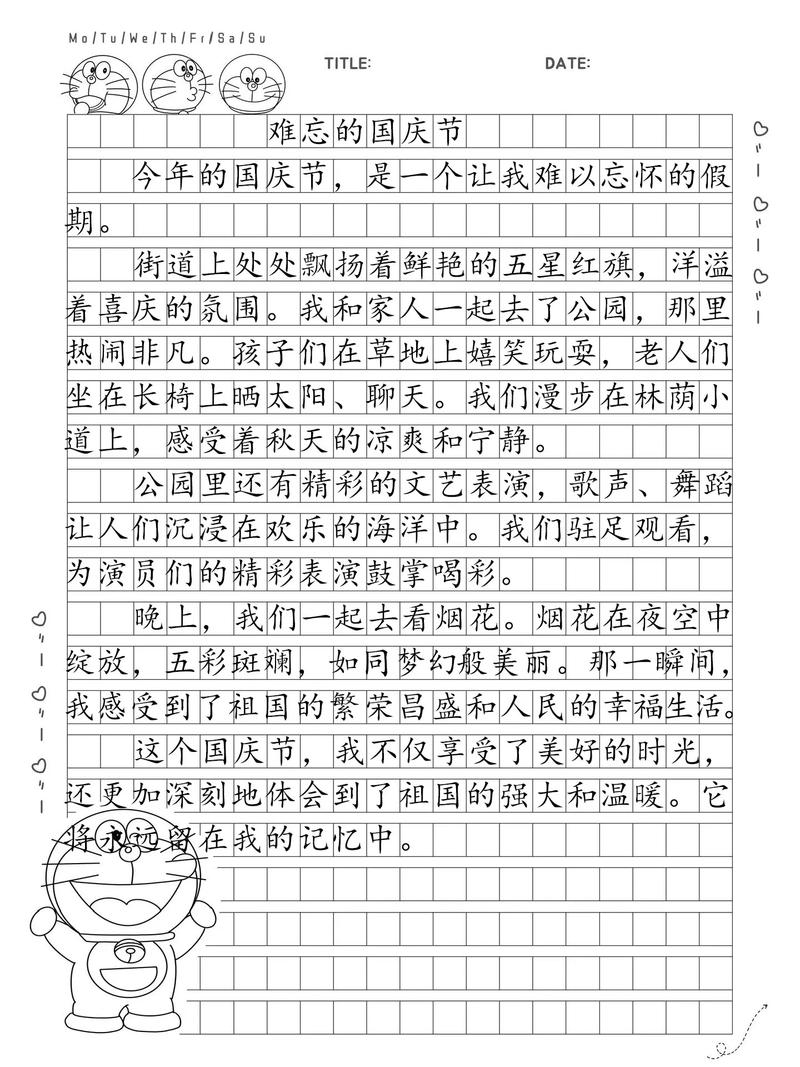 Mo/Tu/We/Th/Fr/Sa/Su
TITLE:
DATE:
难忘的国庆节
今年的国庆节，是一个让我难以忘怀的假
期。
街道上处处飘扬着鲜艳的五星红旗，洋溢
着喜庆的氛围。我和家人一起去了公园，那里
热闹非凡。孩子们在草地上嬉笑玩耍，老人们
坐在长椅上晒太阳、聊天。我们漫步在林荫小
道上，感受着秋天的凉爽和宁静。
公园里还有精彩的文艺表演，歌声、舞蹈
让人们沉浸在欢乐的海洋中。我们驻足观看，
为演员们的精彩表演鼓掌喝彩。
晚上，我们一起去看烟花。烟花在夜空中
绽放，五彩斑斓，如同梦幻般美丽。那一瞬间，
我感受到了祖国的繁荣昌盛和人民的幸福生活。
这个国庆节，我不仅享受了美好的时光，
还更加深刻地体会到了祖国的强大和温暖。它
将永远留在我的记忆中。